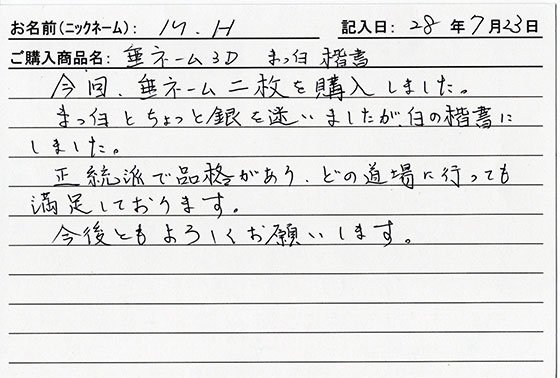 お名前(ニックネーム): M.H 記入日: 28 年 7月 23日
ご購入商品名: 垂ネーム3D まっ白 楷書
今回、垂ネーム二枚を購入しました。
まっ白とちょっと銀を迷いましたが、白の楷書に
しました。
正統派で品格があり、どの道場に行っても
満足しております。
今後ともよろしくお願いします。